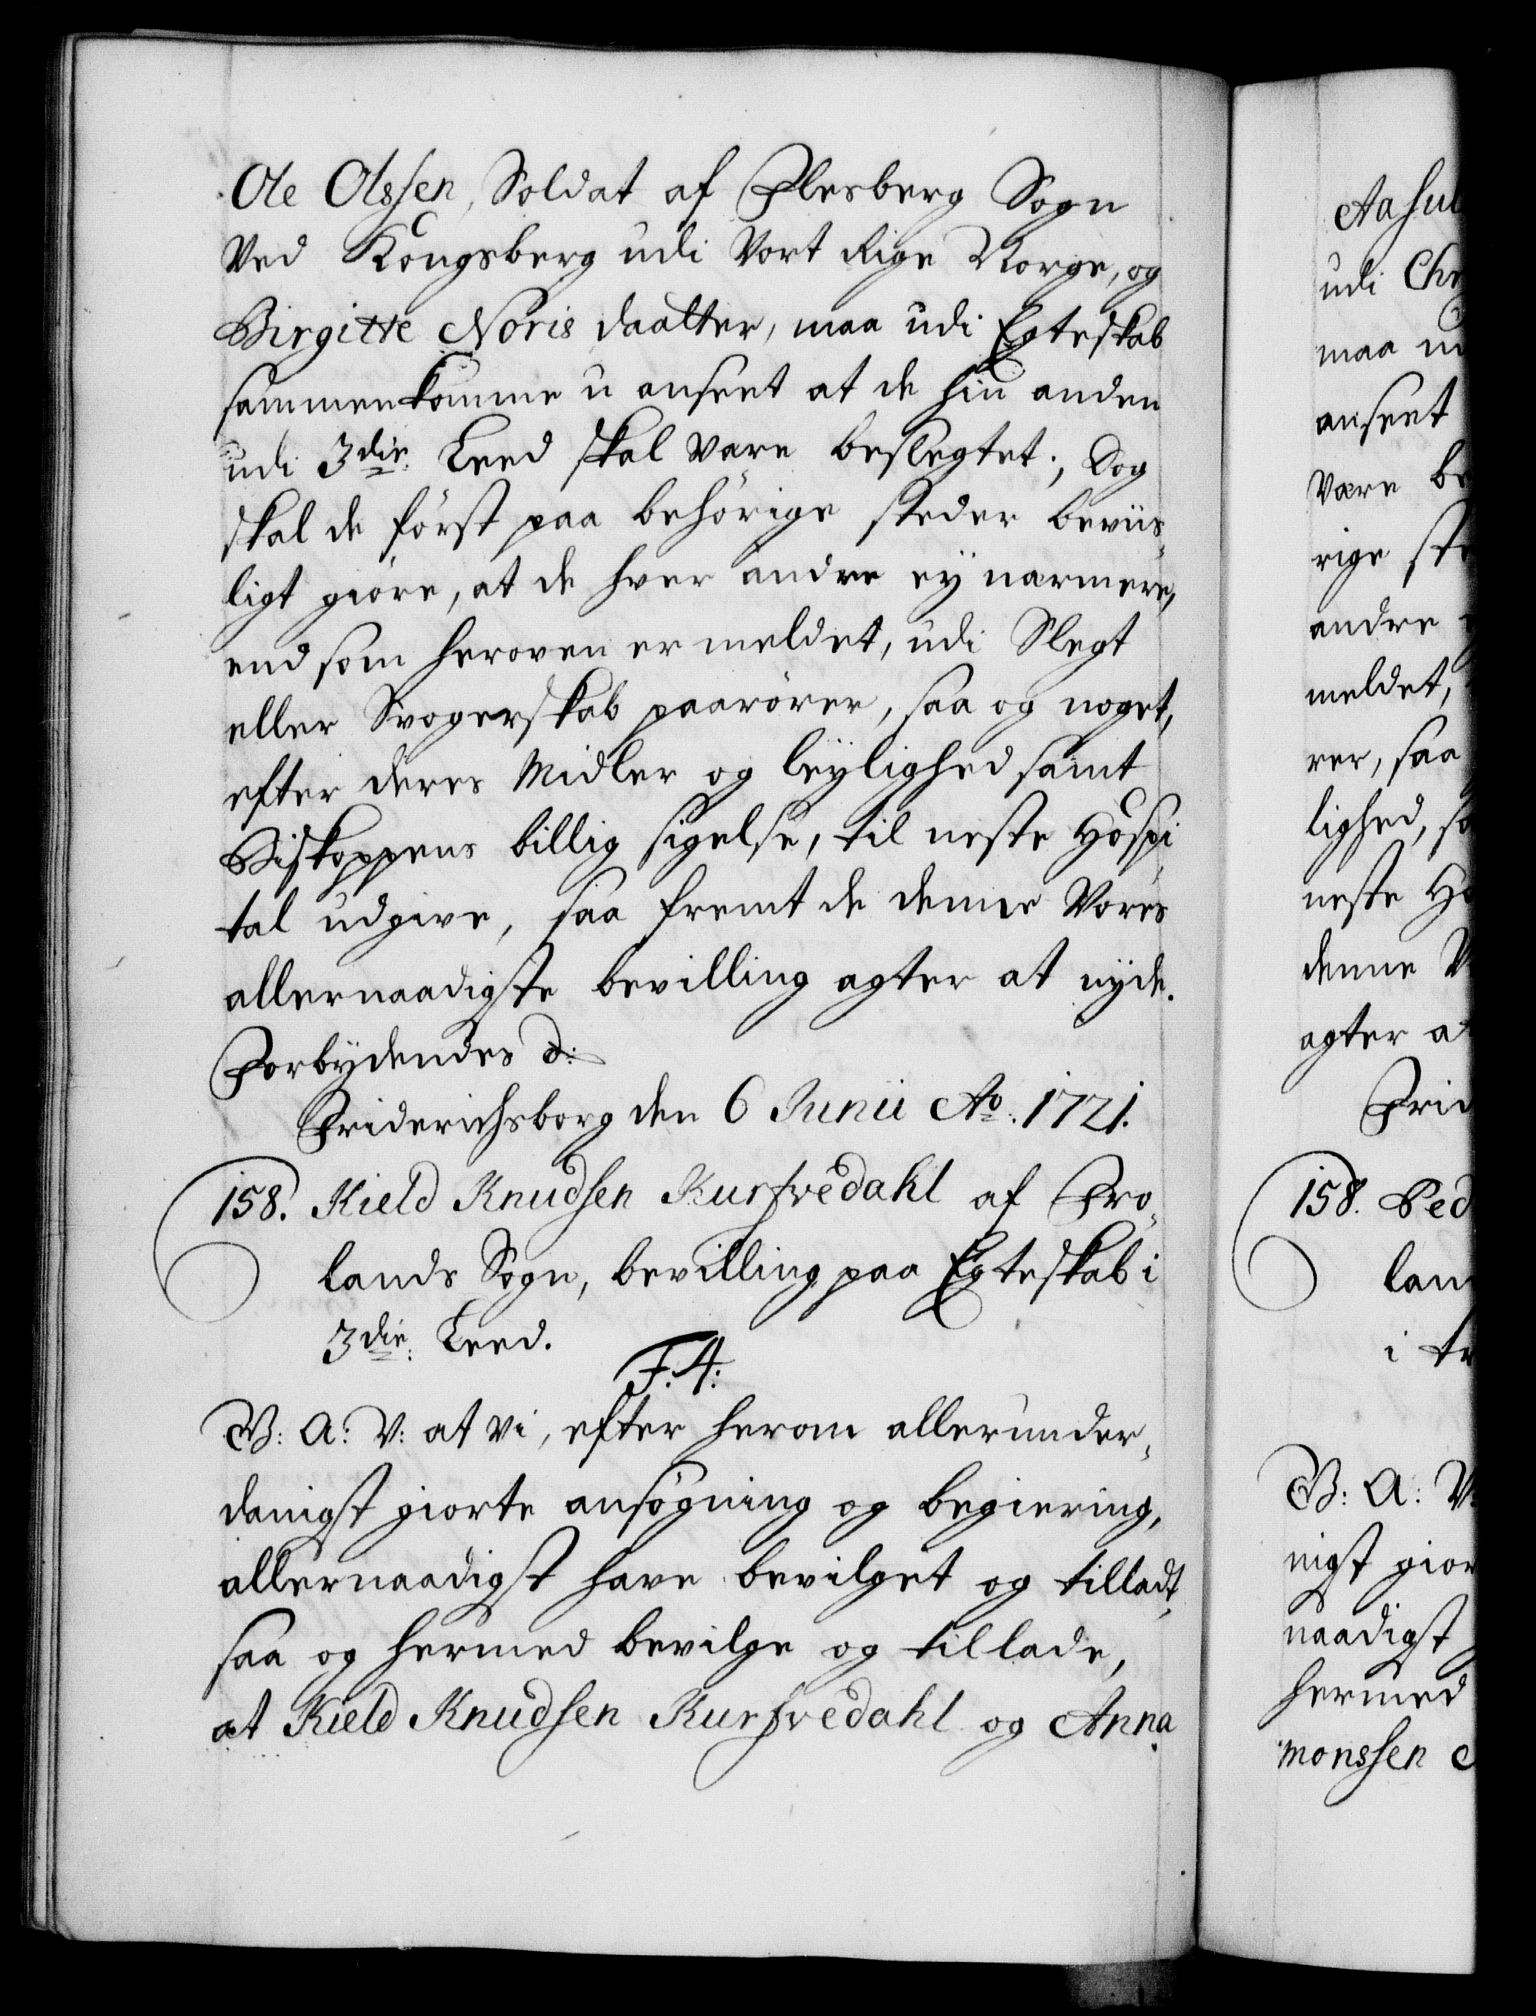 Ole Olssen, Soldat af Flesberg Sogn
ved Kongsberg udi Vort Rige Norge, og
Birgitte Noris daatter, maa udi Egteskab
sammenkomme u anseet at de hin anden
udi 3die Leed skal være beslegtet; Dog
skal de först paa behörige steder beviis-
ligt giöre, at de hver andre ey nærmere,
end som heroven er meldet, udi Slegt
eller Svogerskab paarörer, saa og noget,
efter deres Midler og leylighed samt
Biskoppens billig sigelse, til neste Hospi
tal udgive, saa fremt de denne Vores
allernaadigste bevilling agter at nyde.
Forbydendes d:
Friderichsborg den 6 Junii Ao. 1721.
158. Kield Knudsen Kurfvedahl af Fro-
lands Sogn, bevilling paa Egteskab i
3die Leed.
F. 4:
V: A: V: at vi, efter herom allerunder-
danigst giorte ansögning og begiering,
allernaadigst have bevilget og tilladt,
saa og hermed bevilge og tillade,
at Kield Knudsen Kurfvedahl og Anna
udi Chr
maa ud
anseet
være be
rige ste
andre
meldet,
rer, saa
lighed, sa
neste Ho
denne V
agter at
Frid
158. Ped
lan
i tr
V: A: V:
nigst gior
naadigst
hermed
monssen